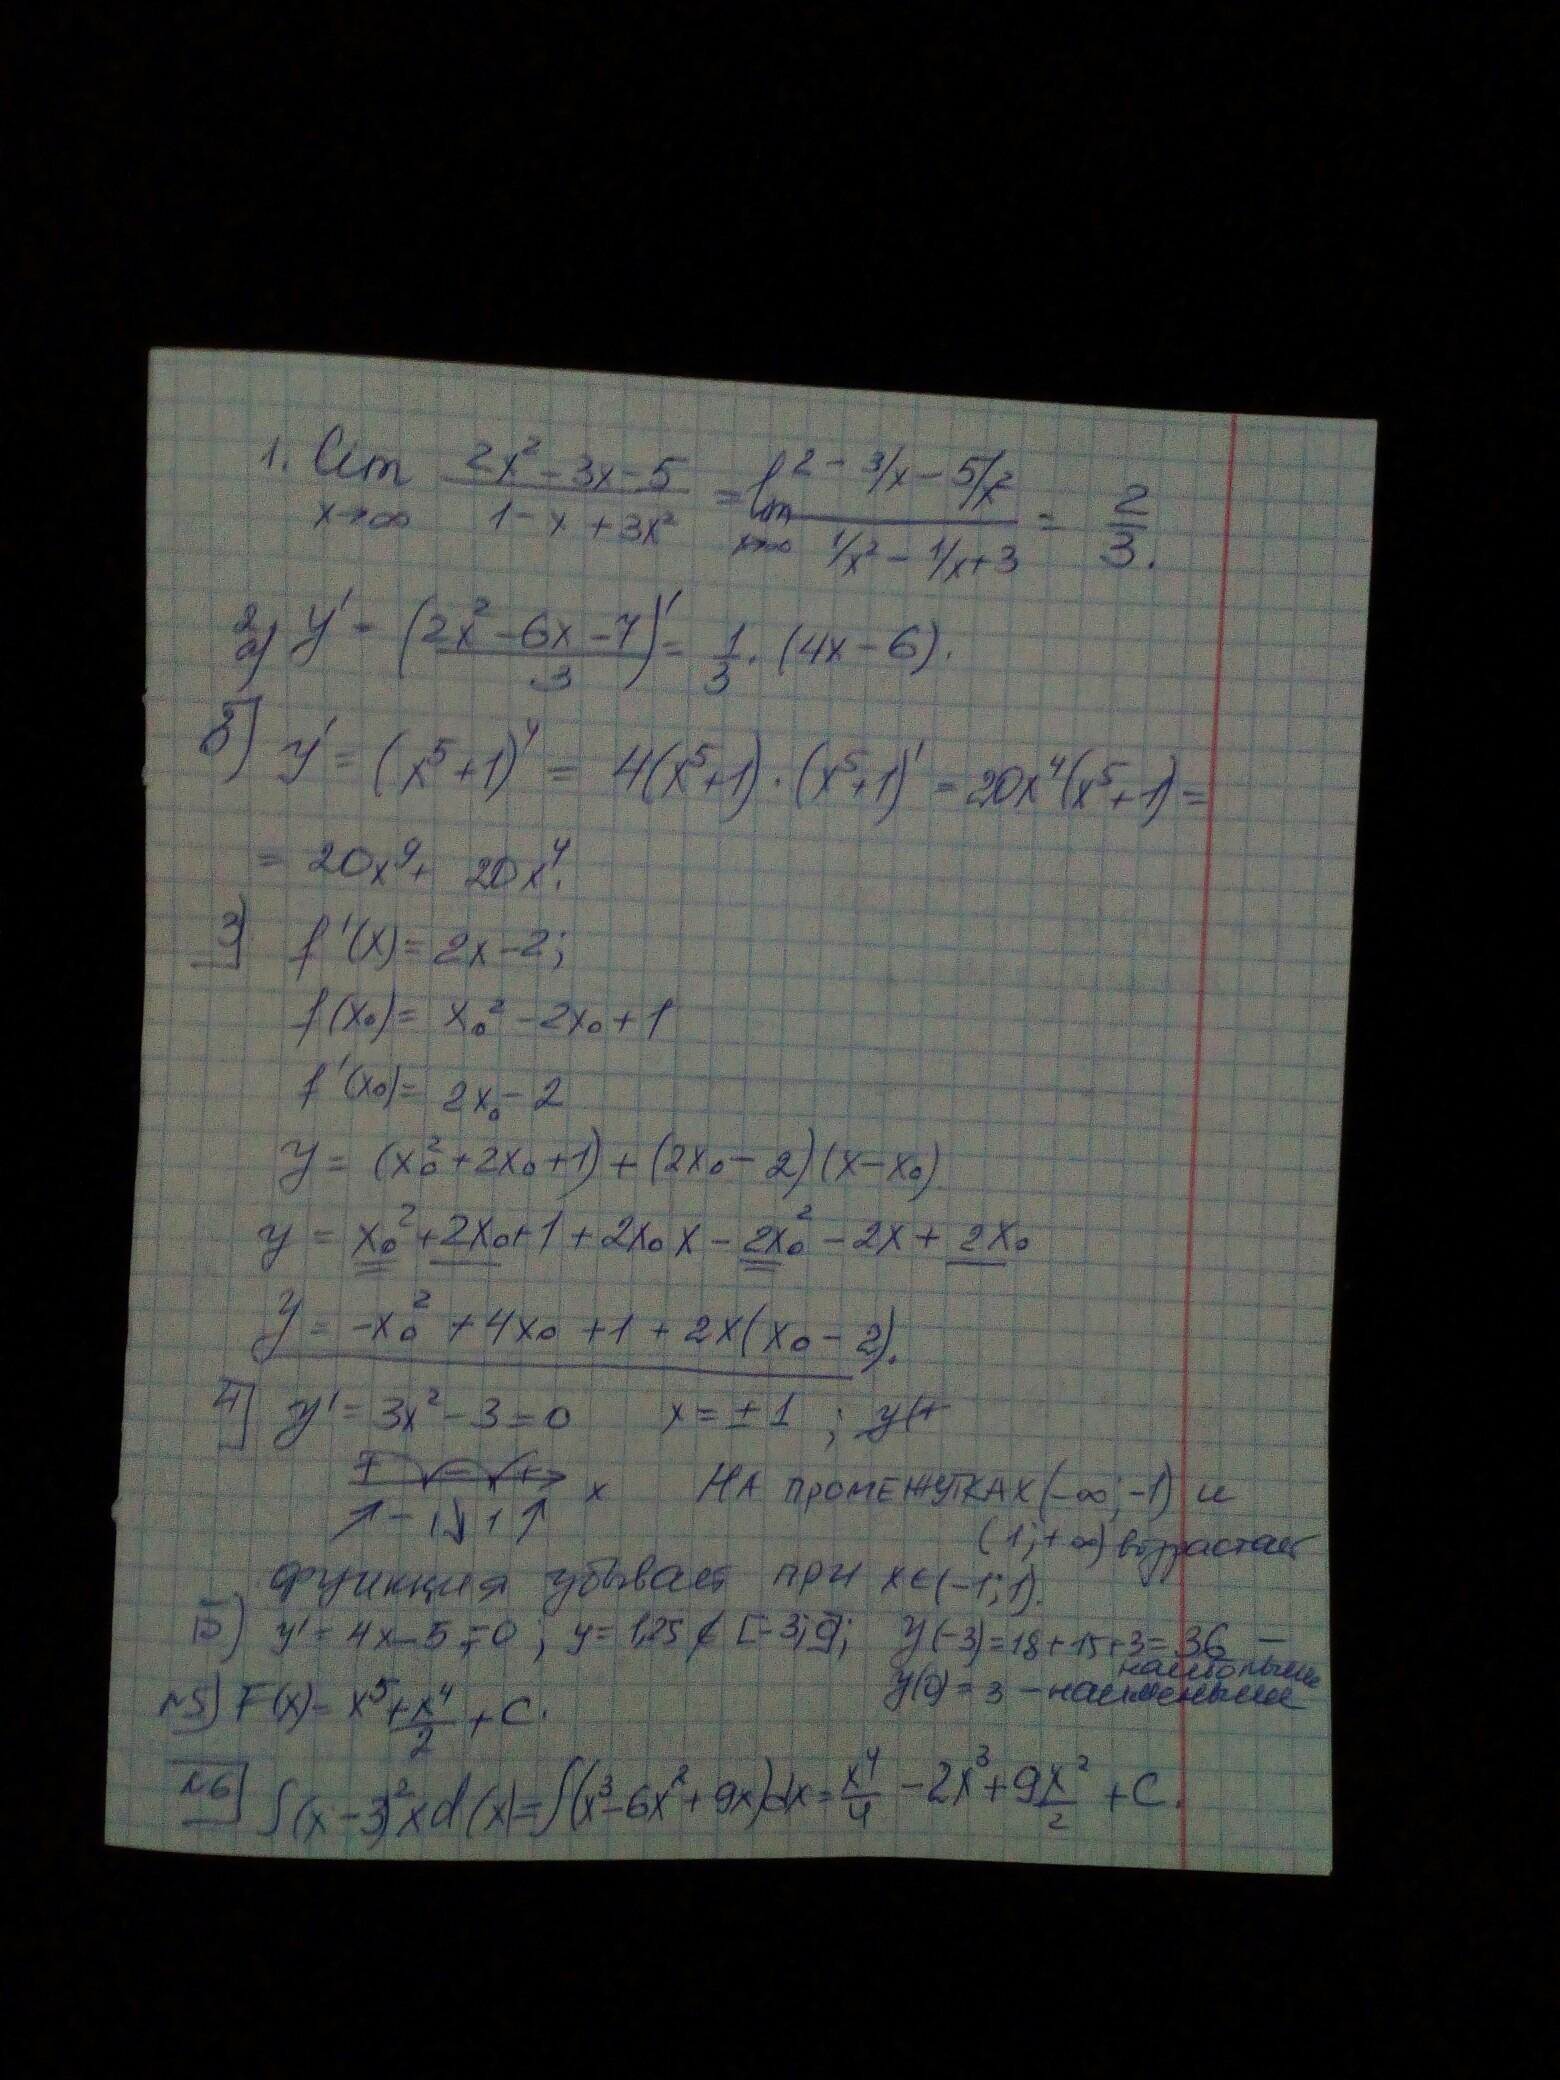 1. lim x→∞ (2x² - 3x - 5)/(1 - x + 3x²) = lim x→∞ (2 - 3/x - 5/x²)/(1/x² - 1/x + 3) = 2/3.
2 а) y' = ((2x² - 6x - 7)/3)' = 1/3 · (4x - 6).
б) y' = (x⁵ + 1)⁴ = 4(x⁵ + 1) · (x⁵ + 1)' = 20x⁴(x⁵ + 1) =
= 20x⁹ + 20x⁴.
3) f'(x) = 2x - 2;
f(x₀) = x₀² - 2x₀ + 1
f'(x₀) = 2x₀ - 2
y = (x₀² + 2x₀ + 1) + (2x₀ - 2)(x - x₀)
y = x₀² + 2x₀ + 1 + 2x₀x - 2x₀² - 2x + 2x₀
y = -x₀² + 4x₀ + 1 + 2x(x₀ - 2).
4) y' = 3x² - 3 = 0 x = ± 1 ;
+ - + x На промежутках (-∞; -1) и
↗ -1 ↘ 1 ↗ (1; +∞) возрастает
функция убывает при x ∈ (-1; 1).
5) y' = 4x - 5 = 0 ; y = 1,25 ∉ [-3; 0]; y(-3) = 18 + 15 + 3 = 36 — наибольшее
y(0) = 3 - наименьшее
№5) F(x) = x⁵ + x⁴/2 + C.
№6) ∫(x - 3)² x d(x) = ∫(x³ - 6x² + 9x)dx = x⁴/4 - 2x³ + 9x²/2 + C.